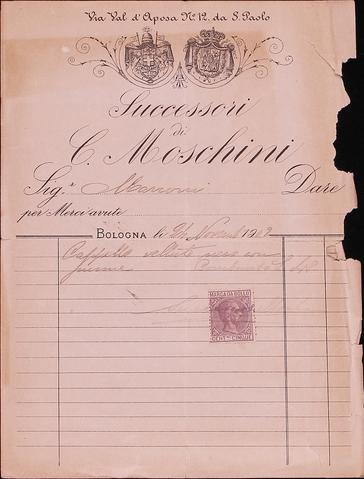 Via Val d'Aposa N.º 12. da S. Paolo
Successori
di
C. Moschini
Sig.ª Marconi Dare
per Merci avute
BOLOGNA li 24 Novemb 1902
Cappello velluto nero con
piume
MARCA DA BOLLO
CENT.MI CINQUE